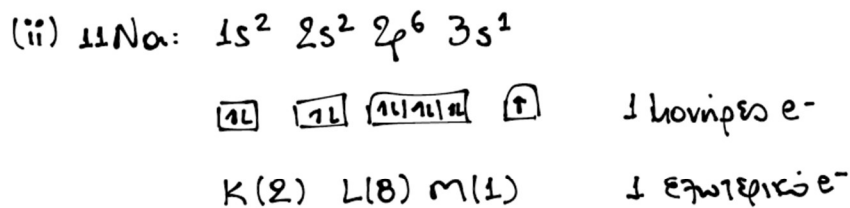 (ii) 11Na: 1s² 2s² 2p⁶ 3s¹
[↑↓] [↑↓] [↑↓|↑↓|↑↓] [↑] 1 μονήρες e⁻
K(2) L(8) M(1) 1 εξωτερικό e⁻